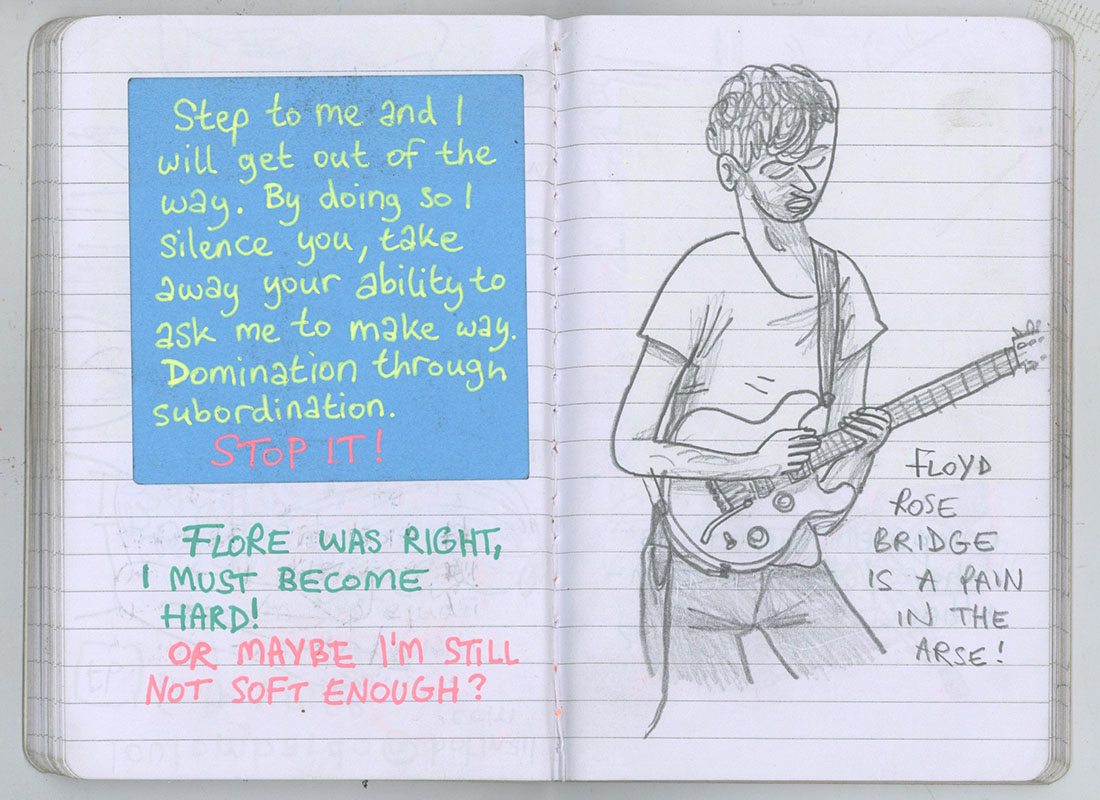 Step to me and I
will get out of the
way. By doing so I
silence you, take
away your ability to
ask me to make way.
Domination through
subordination.
STOP IT!
FLORE WAS RIGHT,
I MUST BECOME
HARD!
OR MAYBE I'M STILL
NOT SOFT ENOUGH?
FLOYD
ROSE
BRIDGE
IS A PAIN
IN THE
ARSE!